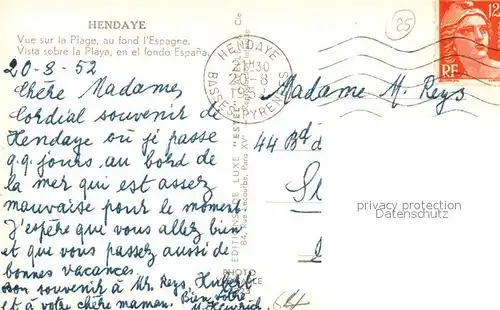 HENDAYE
Vue sur la Plage, au fond l'Espagne.
Vista sobre la Playa, en el fondo España.
20-8-52
Chère Madame,
Cordial souvenir de
Hendaye où je passe
q.q. jours au bord de
la mer qui est assez
mauvaise pour le moment
J'espère que vous allez bien
et que vous passez aussi de
bonnes vacances.
Bon souvenir à Mr. Reys, Hubert
et à votre chère maman. Bien vôtre
EDITIONS DE LUXE "ESTEL"
84, Rue Lecourbe, Paris XV
PHOTO
HENDAYE
21H30
20-8
BASSES PYRENEES
25
12
RF
Madame M. Reys
44 Bd d
privacy protection
Datenschutz
64